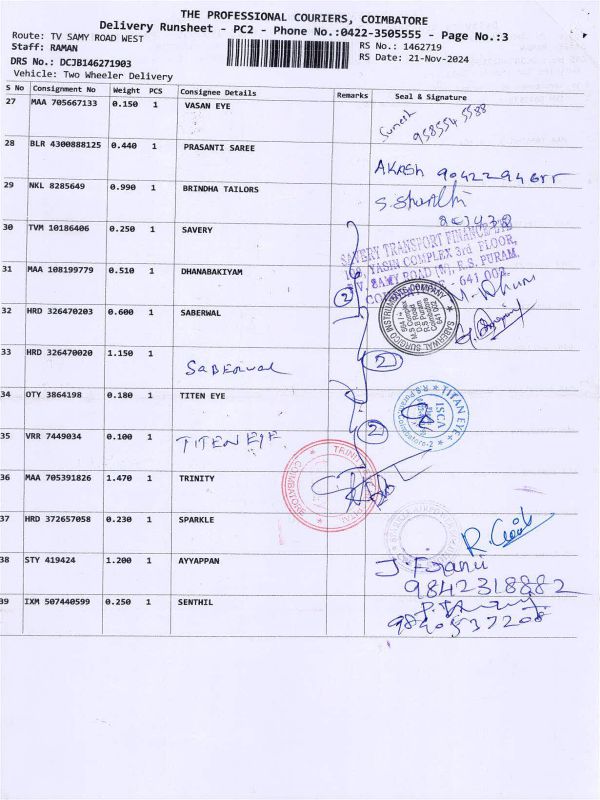 THE PROFESSIONAL COURIERS, COIMBATORE
Delivery Runsheet - PC2 - Phone No.:0422-3505555 - Page No.:3
Route: TV SAMY ROAD WEST
RS No.: 1462719
Staff: RAMAN
RS Date: 21-Nov-2024
DRS No.: DCJB146271903
Vehicle: Two Wheeler Delivery
S No Consignment No Weight PCS Consignee Details Remarks Seal & Signature
27 MAA 705667133 0.150 1 VASAN EYE
Sumesh
28 BLR 4300888125 0.440 1 PRASANTI SAREE
AKASH
29 NKL 8285649 0.990 1 BRINDHA TAILORS
30 TVM 10186406 0.250 1 SAVERY
SAVERY TRANSPORT FINANCE LTD
YASIN COMPLEX 3rd FLOOR,
T.V. SAMY ROAD (W), R.S. PURAM,
COIMBATORE - 641 002.
31 MAA 108199779 0.510 1 DHANABAKIYAM
2
32 HRD 326470203 0.600 1 SABERWAL
SABERWAL SURGICO INSTRUMENTS COMPANY
33 HRD 326470020 1.150 1
SABERWAL
2
34 OTY 3864198 0.180 1 TITEN EYE
TITAN EYE+
ISCA
R.S.Puram
Coimbatore-2
35 VRR 7449034 0.100 1
TITEN EYE
2
36 MAA 705391826 1.470 1 TRINITY
37 HRD 372657058 0.230 1 SPARKLE
38 STY 419424 1.200 1 AYYAPPAN
9842318882
39 IXM 507440599 0.250 1 SENTHIL
9840537208